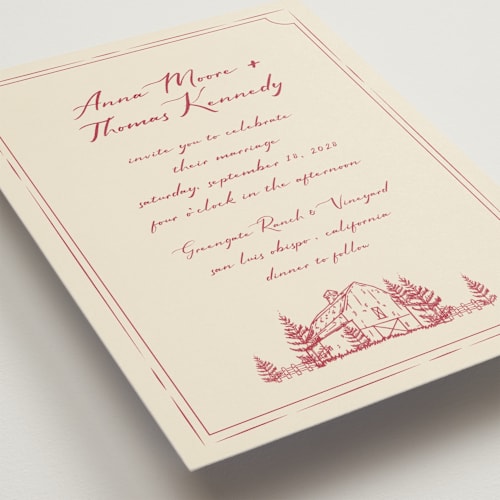 Anna Moore +
Thomas Kennedy
invite you to celebrate
their marriage
saturday, september 18, 2028
four o'clock in the afternoon
Greengate Ranch & Vineyard
san luis obispo, california
dinner to follow